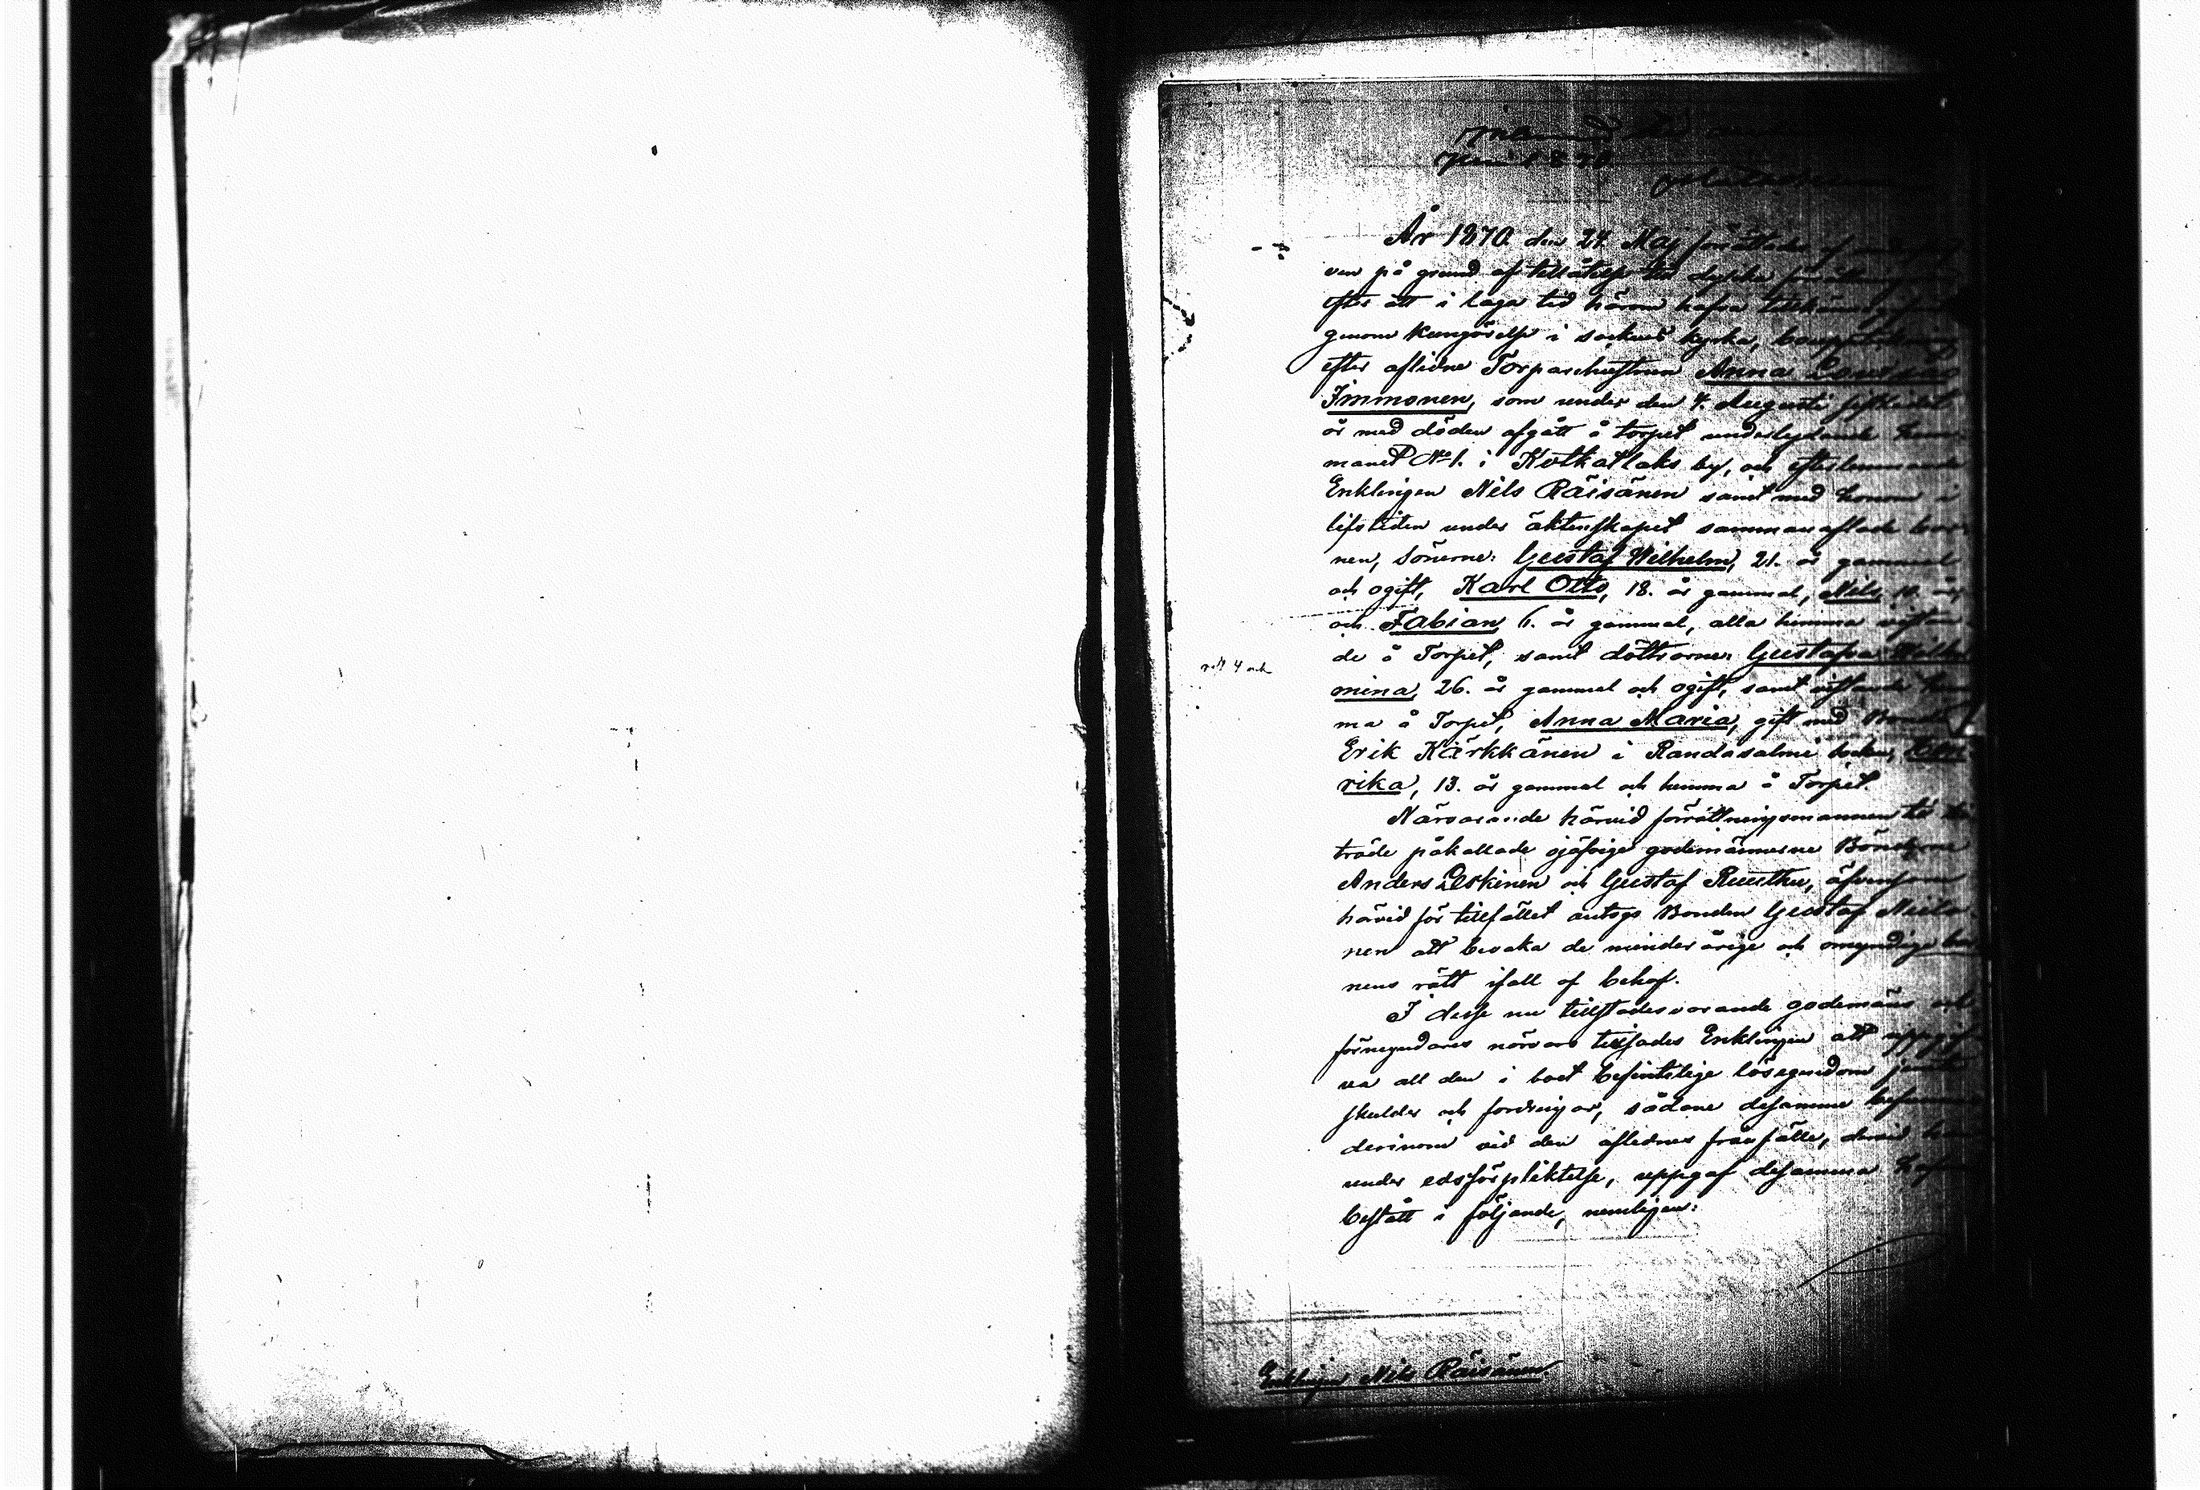 Juni 1870
År 1870 den 24. Maj förrättades af
ven på grund af tillåtelse till dylika
efter att i laga tid härom hafva
genom kungörelse i socknes kyrka,
efter aflidne Torparehustrun Anna Lovisa
Immonen, som under den 4. Augusti
år med döden afgått å torpet underlydande hem-
manet No 1. i Kotkatlaks by, och efterlemnande
Enklingen Nils Räisänen samt med honom i
lifstiden under äktenskapet sammanaflade bar-
nen, Sönerne: Gustaf Wilhelm, 21. år gammal
och ogift, Karl Otto, 18. år gammal, Nils, 10. år
och Fabian, 6. år gammal, alla hemma vistan-
de å Torpet, samt döttrarne: Gustafva Wilhel-
mina, 26. år gammal och ogift, samt vistande hem-
ma å Torpet, Anna Maria, gift med Bonden
Erik Kärkkänen i Randasalmi Socken, Hen-
rika, 13. år gammal och hemma å Torpet.
Närvarande härvid förrättningsmannen till bi-
träde påkallade ojäfvige godemännerne Bönderne
Anders Leskinen och Gustaf Ruuthu, äfvensom
härvid för tillfället antogs Bonden Gustaf
nen att bevaka de minderårige och omyndige bar
nens rätt ifall af behof.
I desse nu tillstädesvarande godemäns och
förmyndares närvaro tillsades Enklingen att uppgif-
va all den i boet befintelige lösegendom jemte
skulder och fordringar, sådane desamme
derinom vid den aflednes frånfälle, dervid han
under edsförpliktelse, uppgaf desamma hafva
bestått i följande, nemligen:
rätt 4 och
Enklingen Nils Räisänen